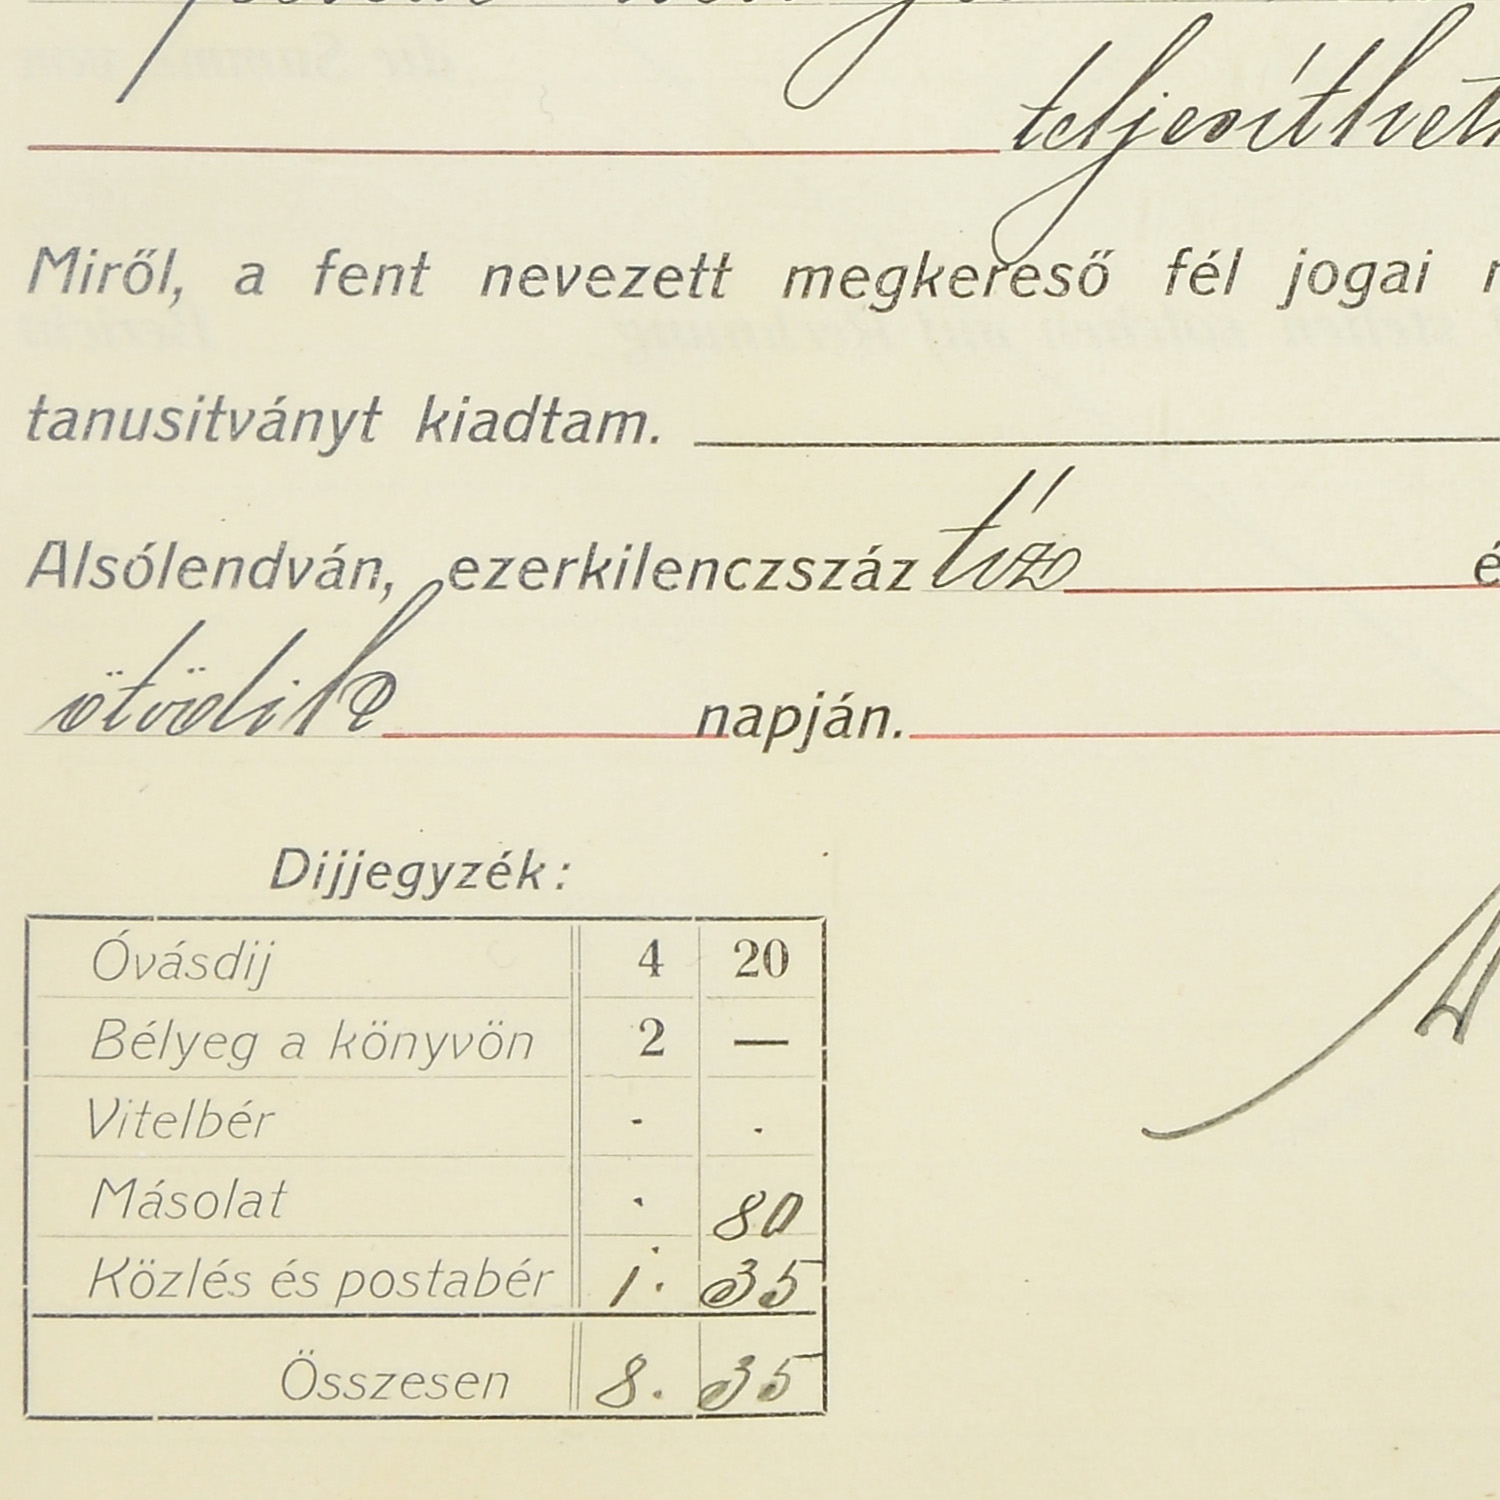 teljesíthet
Miről, a fent nevezett megkereső fél jogai
tanusitványt kiadtam.
Alsólendván, ezerkilenczszáz tíz é
ötödik napján.
Dijjegyzék:
Óvásdij 4 20
Bélyeg a könyvön 2 —
Vitelbér - .
Másolat . 80
Közlés és postabér 1. 35
Összesen 8. 35